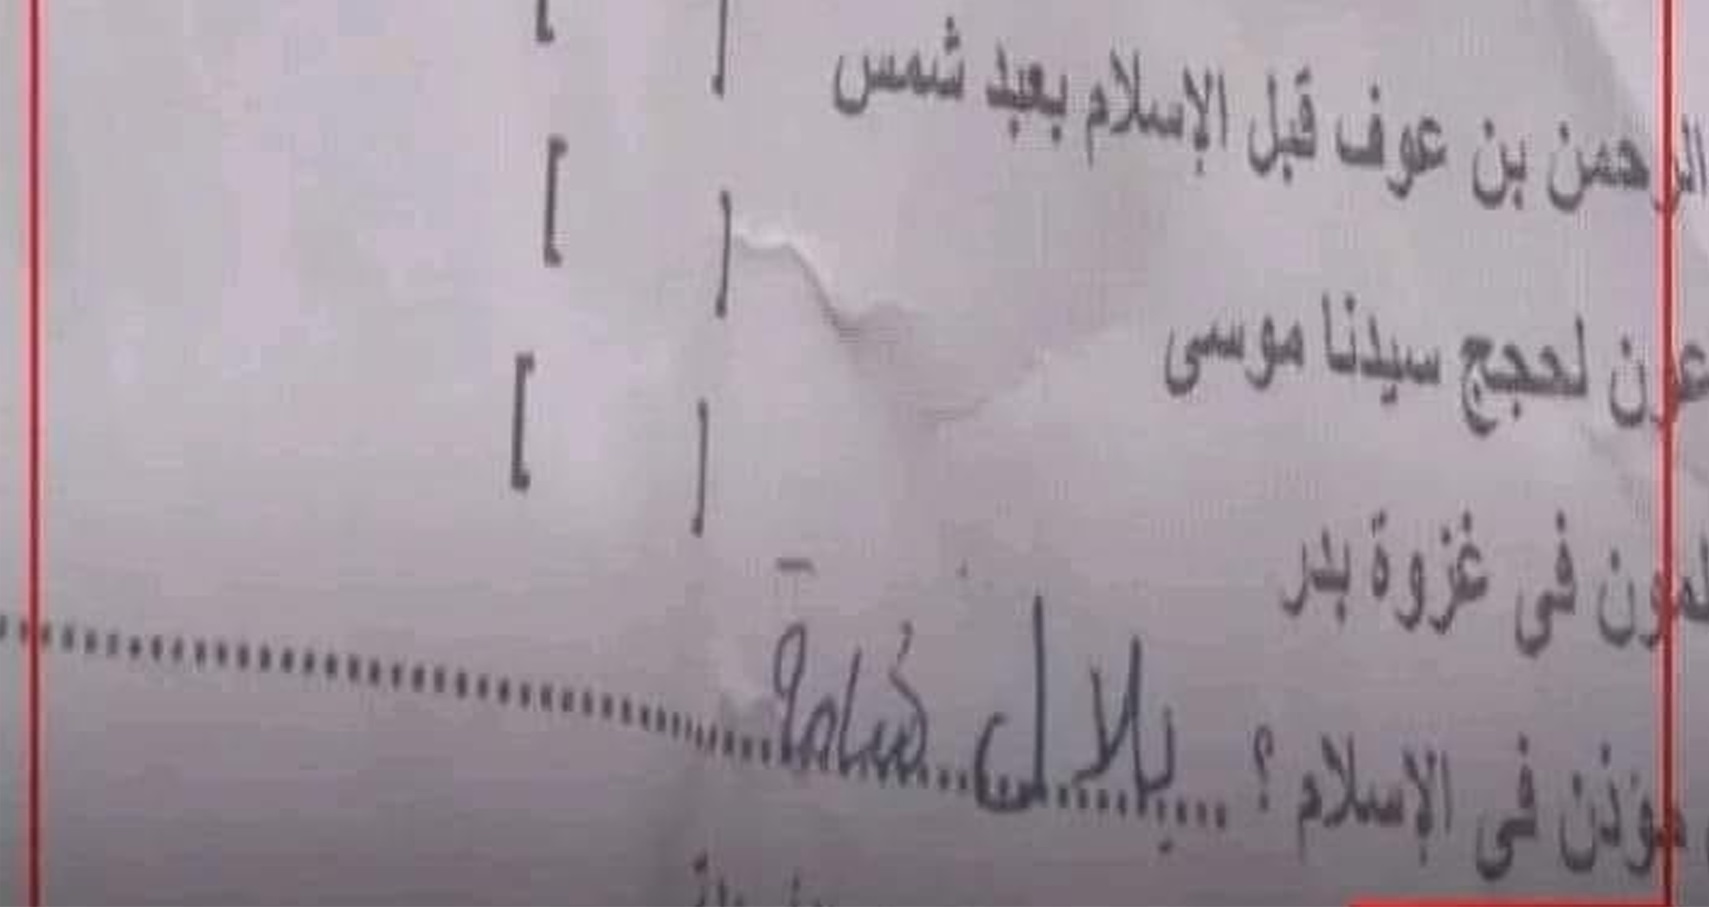 الرحمن بن عوف قبل الإسلام بعبد شمس
[ ]
عون لحجج سيدنا موسى [ ]
لمون فى غزوة بدر [ ]
مؤذن فى الإسلام ؟ بلال شامة